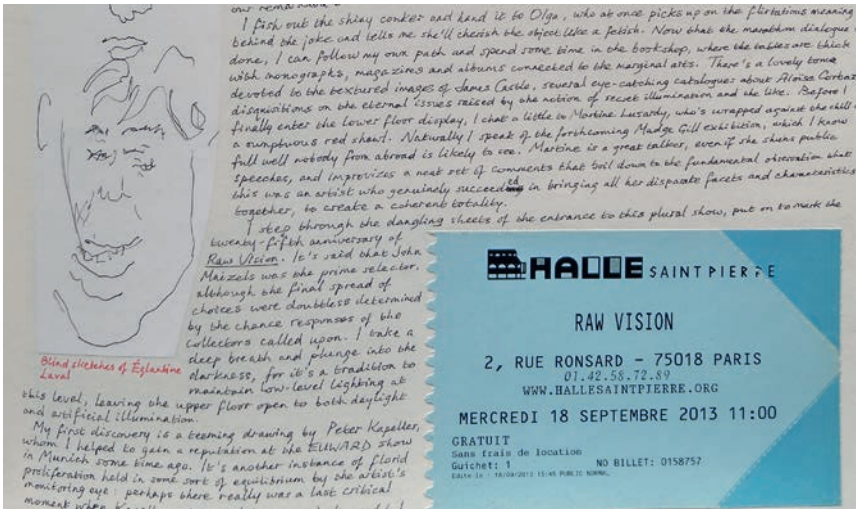 our
I fish out the shiny conker and hand it to Olga, who at once picks up on the flirtatious meaning
behind the joke and tells me she'll cherish the object like a fetish. Now that the marathon dialogue is
done, I can follow my own path and spend some time in the bookshop, where the tables are thick
with monographs, magazines and albums connected to the marginal arts. There's a lovely tome
devoted to the textured images of James Castle, several eye-catching catalogues about Aloïse Corbaz,
disquisitions on the eternal issues raised by the notion of secret illumination and the like. Before I
finally enter the lower floor display, I chat a little to Martine Lusardy, who's wrapped against the chill in
a sumptuous red shawl. Naturally I speak of the forthcoming Madge Gill exhibition, which I know
full well nobody from abroad is likely to see. Martine is a great talker, even if she shuns public
speeches, and improvises a neat set of comments that boil down to the fundamental observation that
this was an artist who genuinely succeeded in bringing all her disparate facets and characteristics
together, to create a coherent totality.
I step through the dangling sheets of the entrance to this plural show, put on to mark the
twenty-fifth anniversary of
Raw Vision. It's said that John
Maizels was the prime selector,
although the final spread of
choices were doubtless determined
by the chance responses of the
collectors called upon. I take a
deep breath and plunge into the
darkness, for it's a tradition to
maintain low-level lighting at
this level, leaving the upper floor open to both daylight
and artificial illumination.
My first discovery is a teeming drawing by Peter Kapeller,
whom I helped to gain a reputation at the EUWARD show
in Munich some time ago. It's another instance of florid
proliferation held in some sort of equilibrium by the artist's
monitoring eye: perhaps there really was a last critical
moment when
Blind sketches of Églantine
Laval
HALLE SAINT PIERRE
RAW VISION
2, RUE RONSARD - 75018 PARIS
01.42.58.72.89
WWW.HALLESAINTPIERRE.ORG
MERCREDI 18 SEPTEMBRE 2013 11:00
GRATUIT
Sans frais de location
Guichet: 1 NO BILLET: 0158757
Edité le : 18/09/2013 15:45 PUBLIC NORMAL